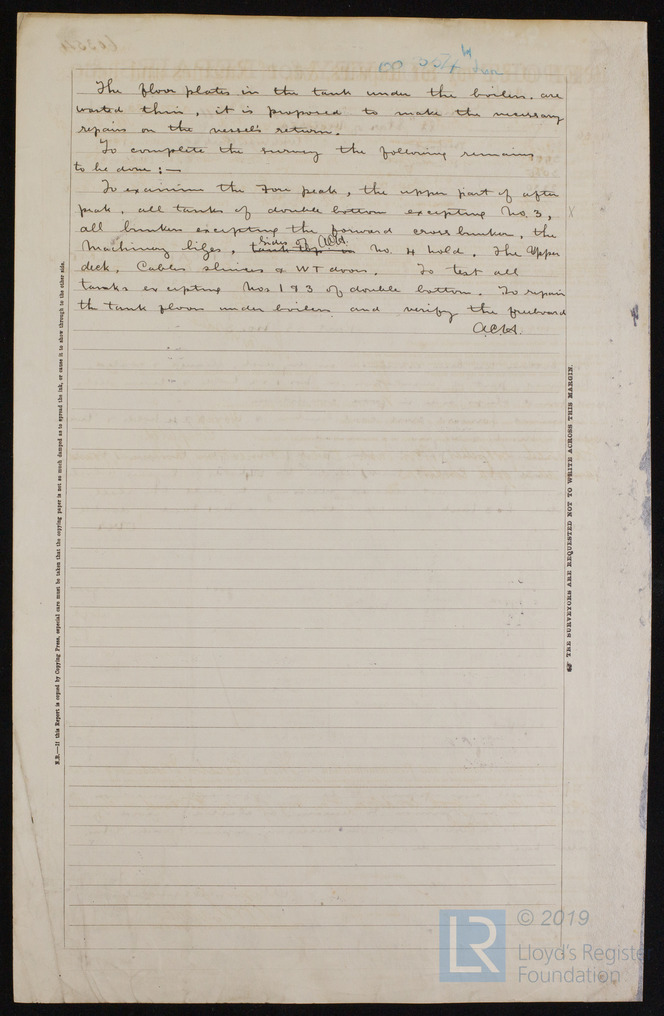 The floor plates in the tank under the boilers are
wasted thin, it is proposed to make the necessary
repairs on the vessel's return.
To complete the survey the following remains
to be done :—
To examine the Fore peak, the upper part of after
peak, all tanks of double bottom excepting No. 3, X
all bunkers excepting the forward cross bunker, the
sides of
Machinery bilges, tank top in No. 4 hold. The Upper
deck, Cables & WT doors. To test all
tanks excepting Nos 1 & 3 of double bottom. To repair
the tank floors under boilers and verify the freeboard
N.B.—If this Report is copied by Copying Press, especial care must be taken that the copying paper is not so much damped as to spread the ink, or cause it to show through to the other side.
THE SURVEYORS ARE REQUESTED NOT TO WRITE ACROSS THIS MARGIN.
LR
© 2019
Lloyd's Register
Foundation